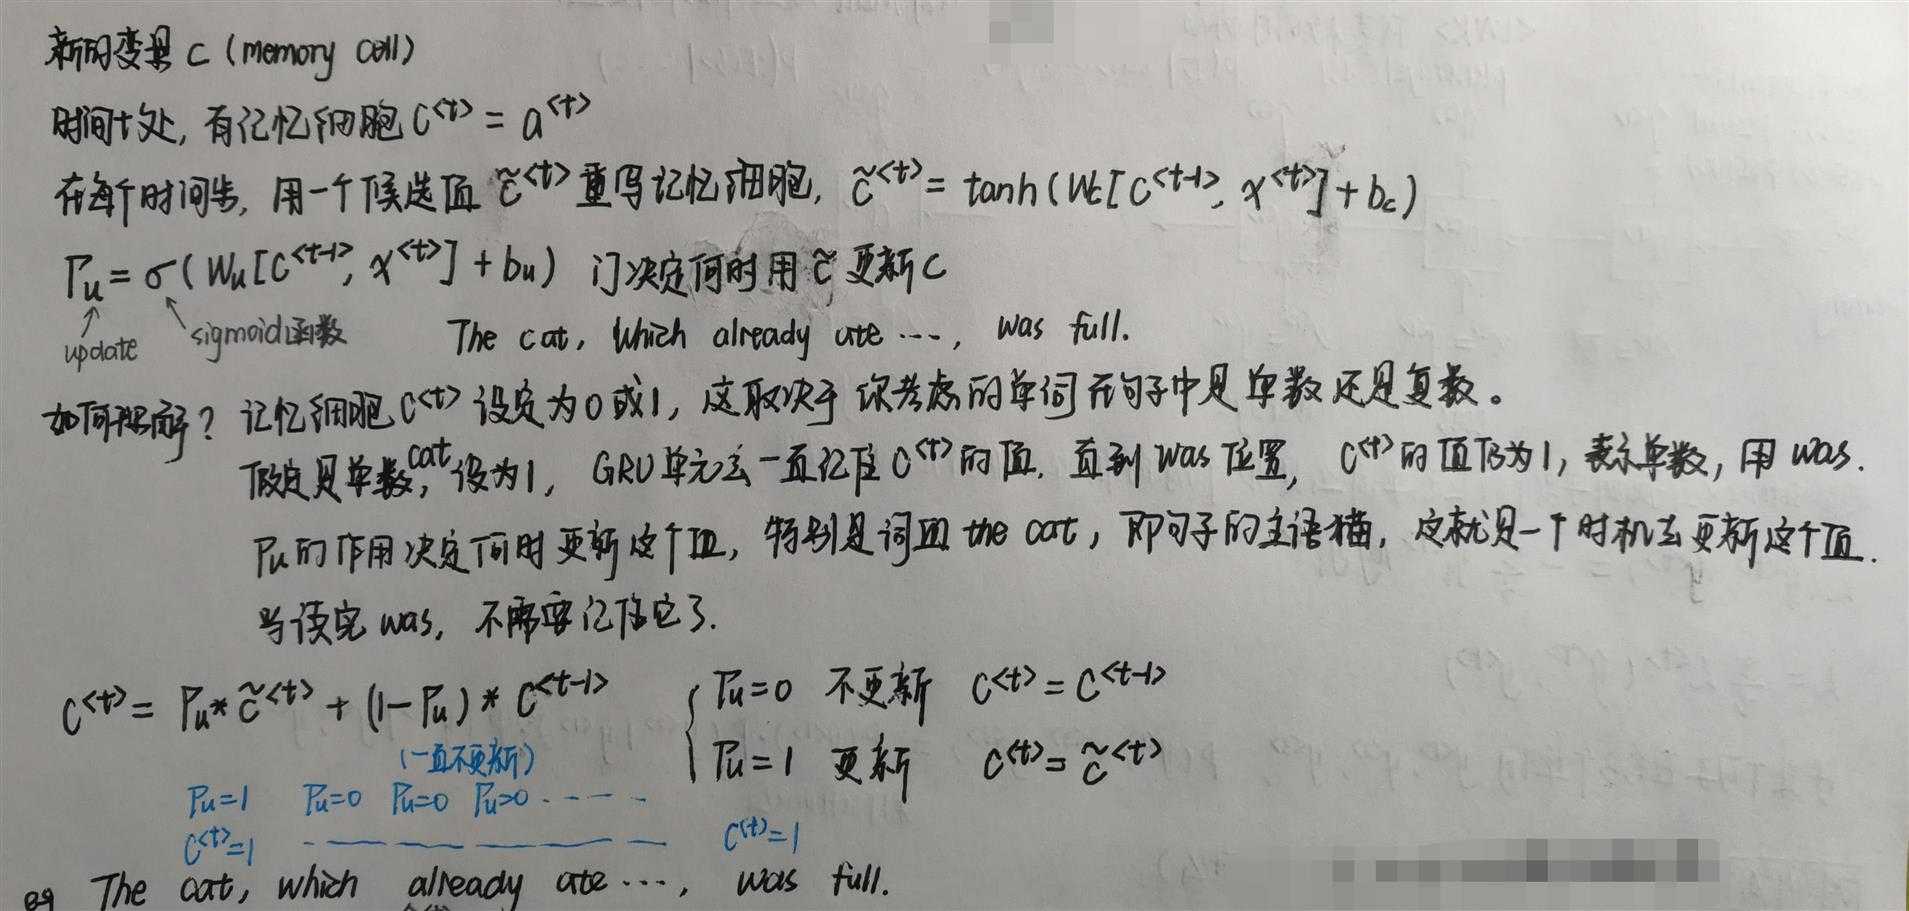 新的变量 C (memory cell)
时间t处, 有记忆细胞 C<t> = a<t>
在每个时间步, 用一个候选值 c̃<t> 重写记忆细胞, c̃<t> = tanh(Wc[C<t-1>, x<t>] + bc)
Γu = σ(Wu[C<t-1>, x<t>] + bu) 门决定何时用 c̃ 更新 C
update sigmoid函数 The cat, which already ate ..., was full.
如何理解? 记忆细胞 C<t> 设定为0或1, 这取决于 你考虑的单词在句子中是单数还是复数。
假定是单数, cat 设为1, GRU单元会一直记住 C<t> 的值, 直到 was 位置, C<t> 的值仍为1, 表示单数, 用 was.
Γu的作用决定何时更新这个值, 特别是词组 the cat, 即句子的主语猫, 这就是一个时机去更新这个值.
当读完 was, 不需要记住它了.
C<t> = Γu * c̃<t> + (1-Γu) * C<t-1>
{ Γu=0 不更新 C<t> = C<t-1>
Γu=1 更新 C<t> = c̃<t>
(一直不更新)
Γu=1 Γu=0 Γu=0 Γu=0 .....
C<t>=1 — — — — — — C<t>=1
eg The cat, which already ate ..., was full.